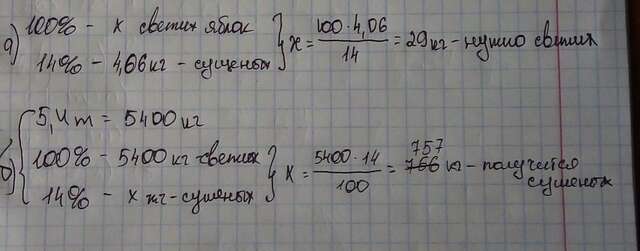 а) 100% - х свежих яблок } х = 100·4,06 / 14 = 29 кг - нужно свежих
14% - 4,06 кг - сушеных
б) { 5,4 т = 5400 кг
100% - 5400 кг свежих } х = 5400·14 / 100 = 766 757 кг - получится сушеных
14% - х кг - сушеных